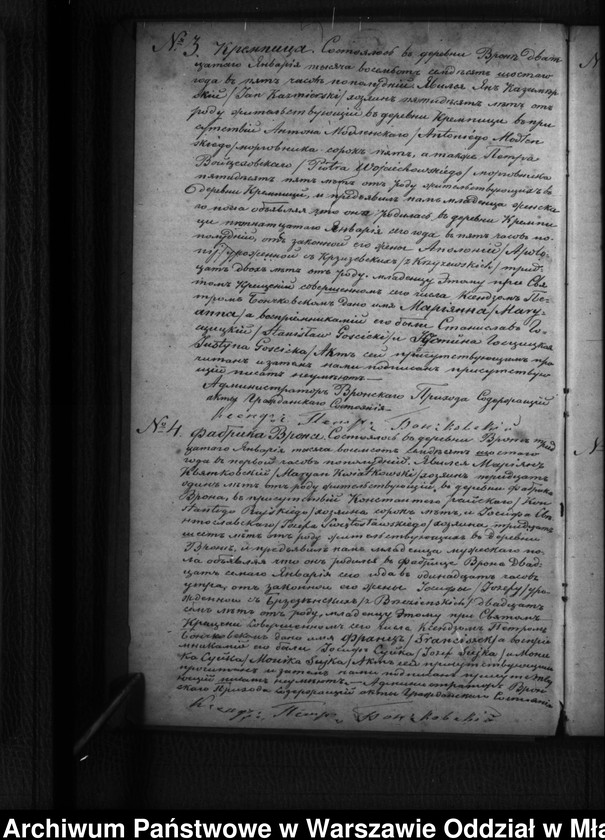 № 3 Кремпица. Состоялось въ деревни Вронѣ двад-
цатаго Января тысяча восемьсотъ семьдѣсятъ шестого
года въ пять часовъ пополудни. Явился Янъ Казмер-
скій /Jan Kazmierski/ хозяинъ пятидѣсятъ лѣтъ отъ
роду жительствующій въ деревни Кремпице въ при-
сутствіи Антона Модленскаго /Antoniego Modlen
skiego/ морговника сорокъ пять, а также Петра
Войцеховскаго /Piotra Wojciechowskiego/ морговника
пятидѣсятъ пять лѣтъ отъ роду жительствующихъ въ
деревни Кремпице, и предъявилъ намъ младенца женска
го пола объявляя что она родилась въ деревни Кремпи
це Января сего года въ пять часовъ по-
полудни, отъ законной его жены Аполоніи /Apolo-
nij/ урожденной съ Кржижевскихъ /z Krzyzewskich/ трид-
цать двохъ лѣтъ отъ роду. Младенцу этому при Свя
томъ Крещеніи совершенномъ сего числа Ксендзомъ Пе-
тромъ Бончковскимъ дано имя Маріянна /Mary-
anna/ а воспріемниками его были Станиславъ Го-
сцицкій /Stanisław Goscicki/ и Юстина Госцицка
/Justyna Goscicka/ Актъ сей присутствующимъ про
читанъ и затѣмъ нами подписанъ присутствую
щій писать неумѣютъ.
Администраторъ Вронскаго Прихода Содержащій
акты Гражданскаго Состоянія
Ксендзъ Петръ Бончковскій
№ 4. Фабрика Врона. Состоялось въ деревни Вронѣ двад
цатаго Января тысяча восемсотъ семьдѣсятъ шестого
года въ первой часовъ пополудни. Явился Маріянъ
Квятковскій /Maryan Kwiatkowski/ хозяинъ тридцать
одинъ лѣтъ отъ роду жительствующій въ деревни Фабрика
Врона, въ присутствіи Константого Райскаго /Kon
stantego Rajskiego/ хозяина сорокъ лѣтъ, и Іосифа
/Jozefa хозяина тридцать
шесть лѣтъ отъ роду жительствующихъ въ деревни
Вронѣ, и предъявилъ намъ младенца мужескаго по-
ла объявляя что онъ родился въ Фабрице Врона два
цать Января сего года въ одинадцать часовъ
утра, отъ законной его жены Іосифы /Jozefy/ уро-
жденной съ Брзезинскихъ /z Brzezinskich/ двадцать
семь лѣтъ отъ роду, младенцу этому при Святомъ
Крещеніи совершенномъ сего числа Ксендзомъ Петромъ
Бончковскимъ дано имя Францъ /Franciszek/ а воспрі-
емниками его были Іосифъ Суйка /Jozef Sujka/ и Мони
ка Суйка /Monika Sujka/ Актъ сей присутствующимъ
прочитанъ и затѣмъ нами подписанъ присутству
ющій писать неумѣютъ. Администраторъ Врон-
скаго Прихода Содержащій акты Гражданскаго Состоянія
Ксендзъ Петръ Бончковскій
Archiwum Państwowe w Warszawie Oddział w Mła